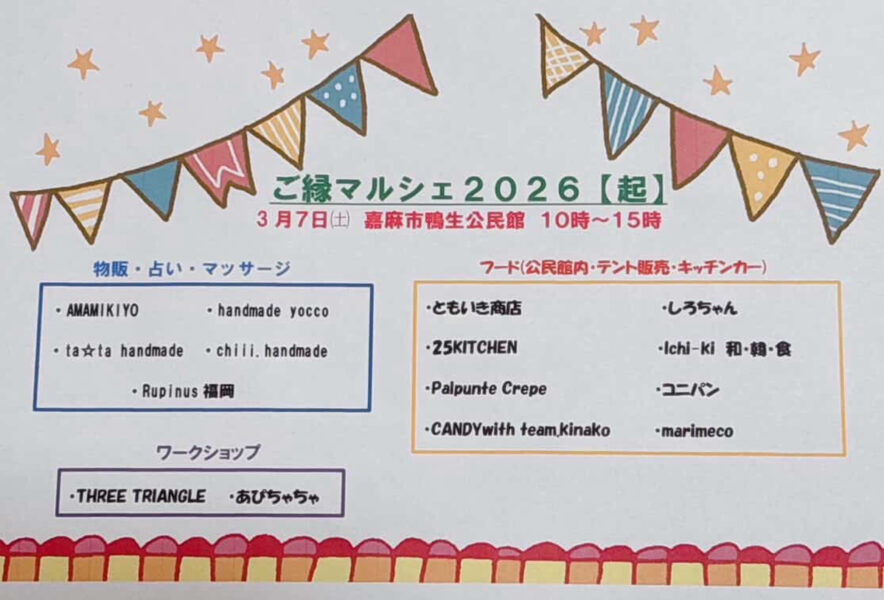 ご縁マルシェ2026【起】
3月7日㈯ 嘉麻市鴨生公民館 10時～15時
物販・占い・マッサージ
・AMAMIKIYO ・handmade yocco
・ta☆ta handmade ・chiii.handmade
・Rupinus福岡
ワークショップ
・THREE TRIANGLE ・あぴちゃちゃ
フード(公民館内・テント販売・キッチンカー)
・ともいき商店 ・しろちゃん
・25KITCHEN ・Ichi-Ki 和・韓・食
・Palpunte Crepe ・コニパン
・CANDYwith team.kinako ・marimeco